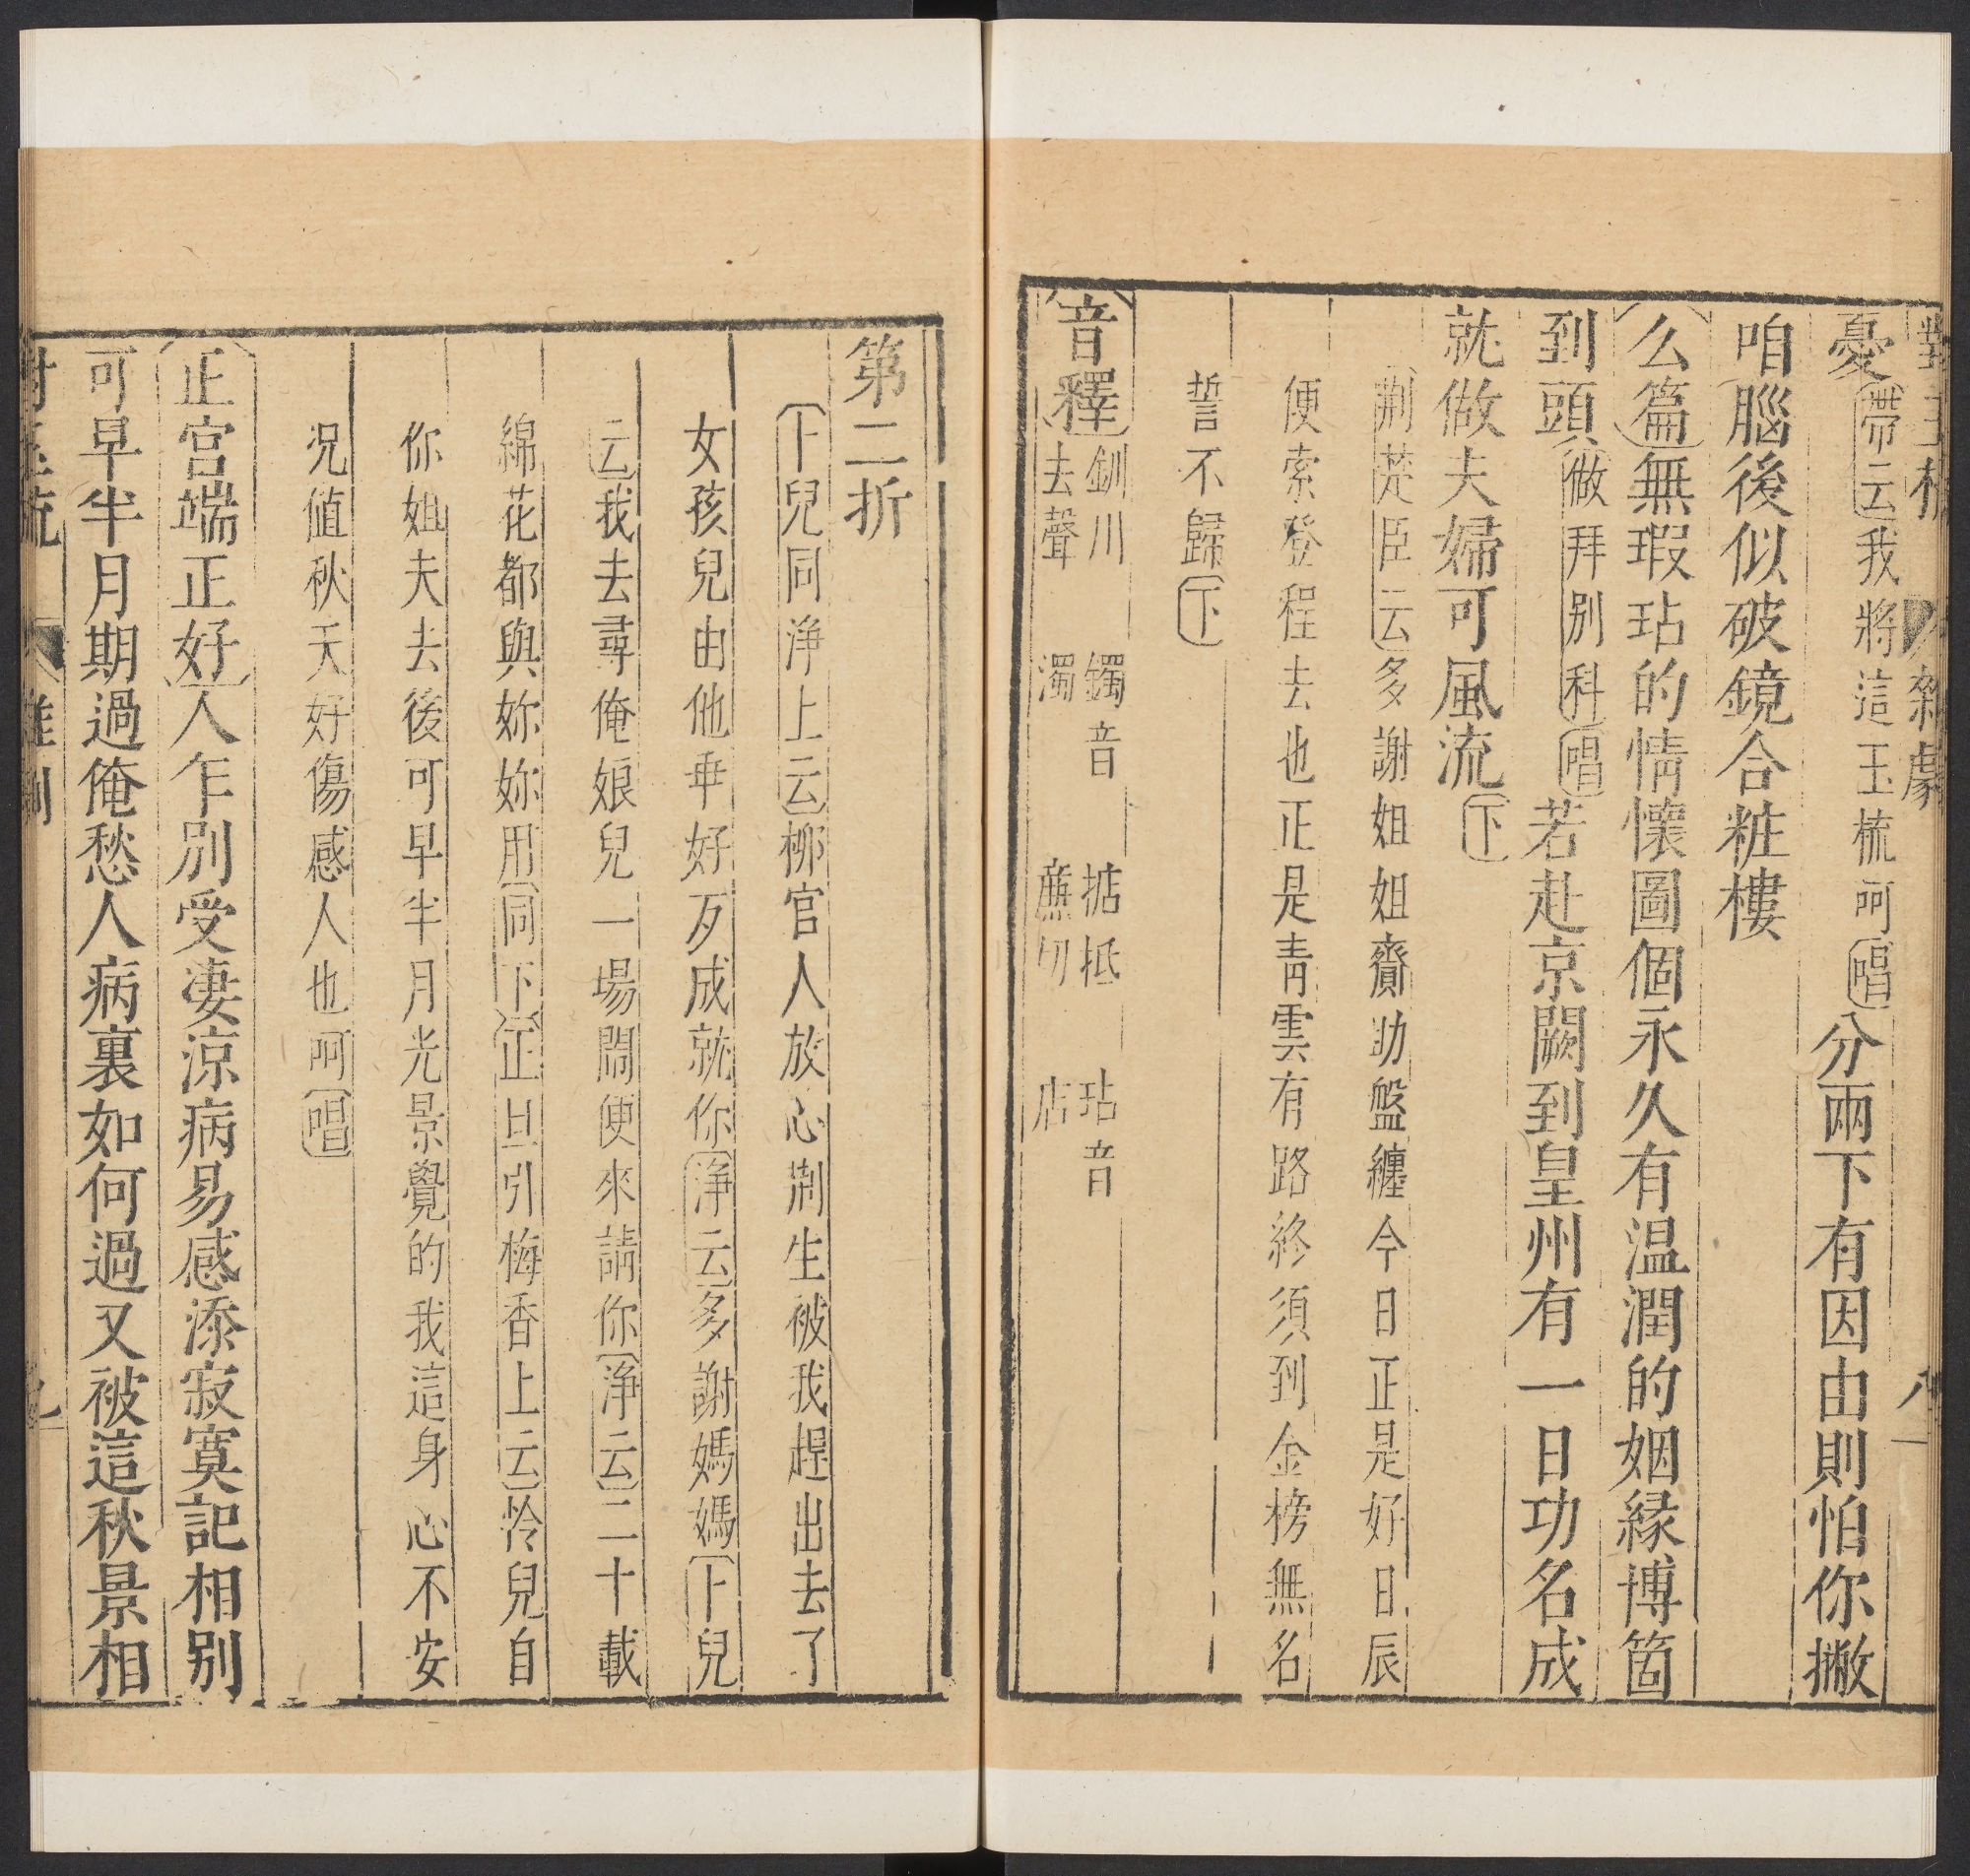 憂帶云我將這玉梳呵唱分兩下有因由則怕你撇
咱腦後似破鏡合粧樓
么篇無瑕玷的情懷圖個永久有温潤的姻緣博箇
到頭做拜别科唱若赴京闕到皇州有一日功名成
就做夫婦可風流下
荆楚臣云多謝姐姐齎助盤纏今日正是好日辰
便索登程去也正是青雲有路終須到金榜無名
誓不歸下
音釋
釧川去聲
鐲音濁
掂抵蕪切
玷音店
第二折
卜兒同淨上云柳官人放心荆生被我趕出去了
女孩兒由他乖好歹成就你淨云多謝媽媽卜兒
云我去尋俺娘兒一場閙便來請你淨云二十載
綿花都與妳妳用同下正旦引梅香上云怜兒自
你姐夫去後可早半月光景覺的我這身心不安
况值秋天好傷感人也呵唱
正宫端正好人乍别受凄涼病易感添寂寞記相别
可早半月期過俺愁人病裏如何過又被這秋景相